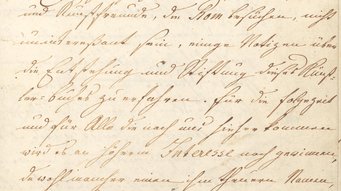 und Kunstfreunde, die Rom besuchen, nicht
uninteressant sein, einige Notizen über
die Entstehung und Stiftung dieses Künst-
lerbuches zu erfahren. Für die Folgezeit
und für Alle die nach uns hieher kommen
wird es an höherm Interesse noch gewinnen,
da wohl mancher einen ihm theuern Namen,